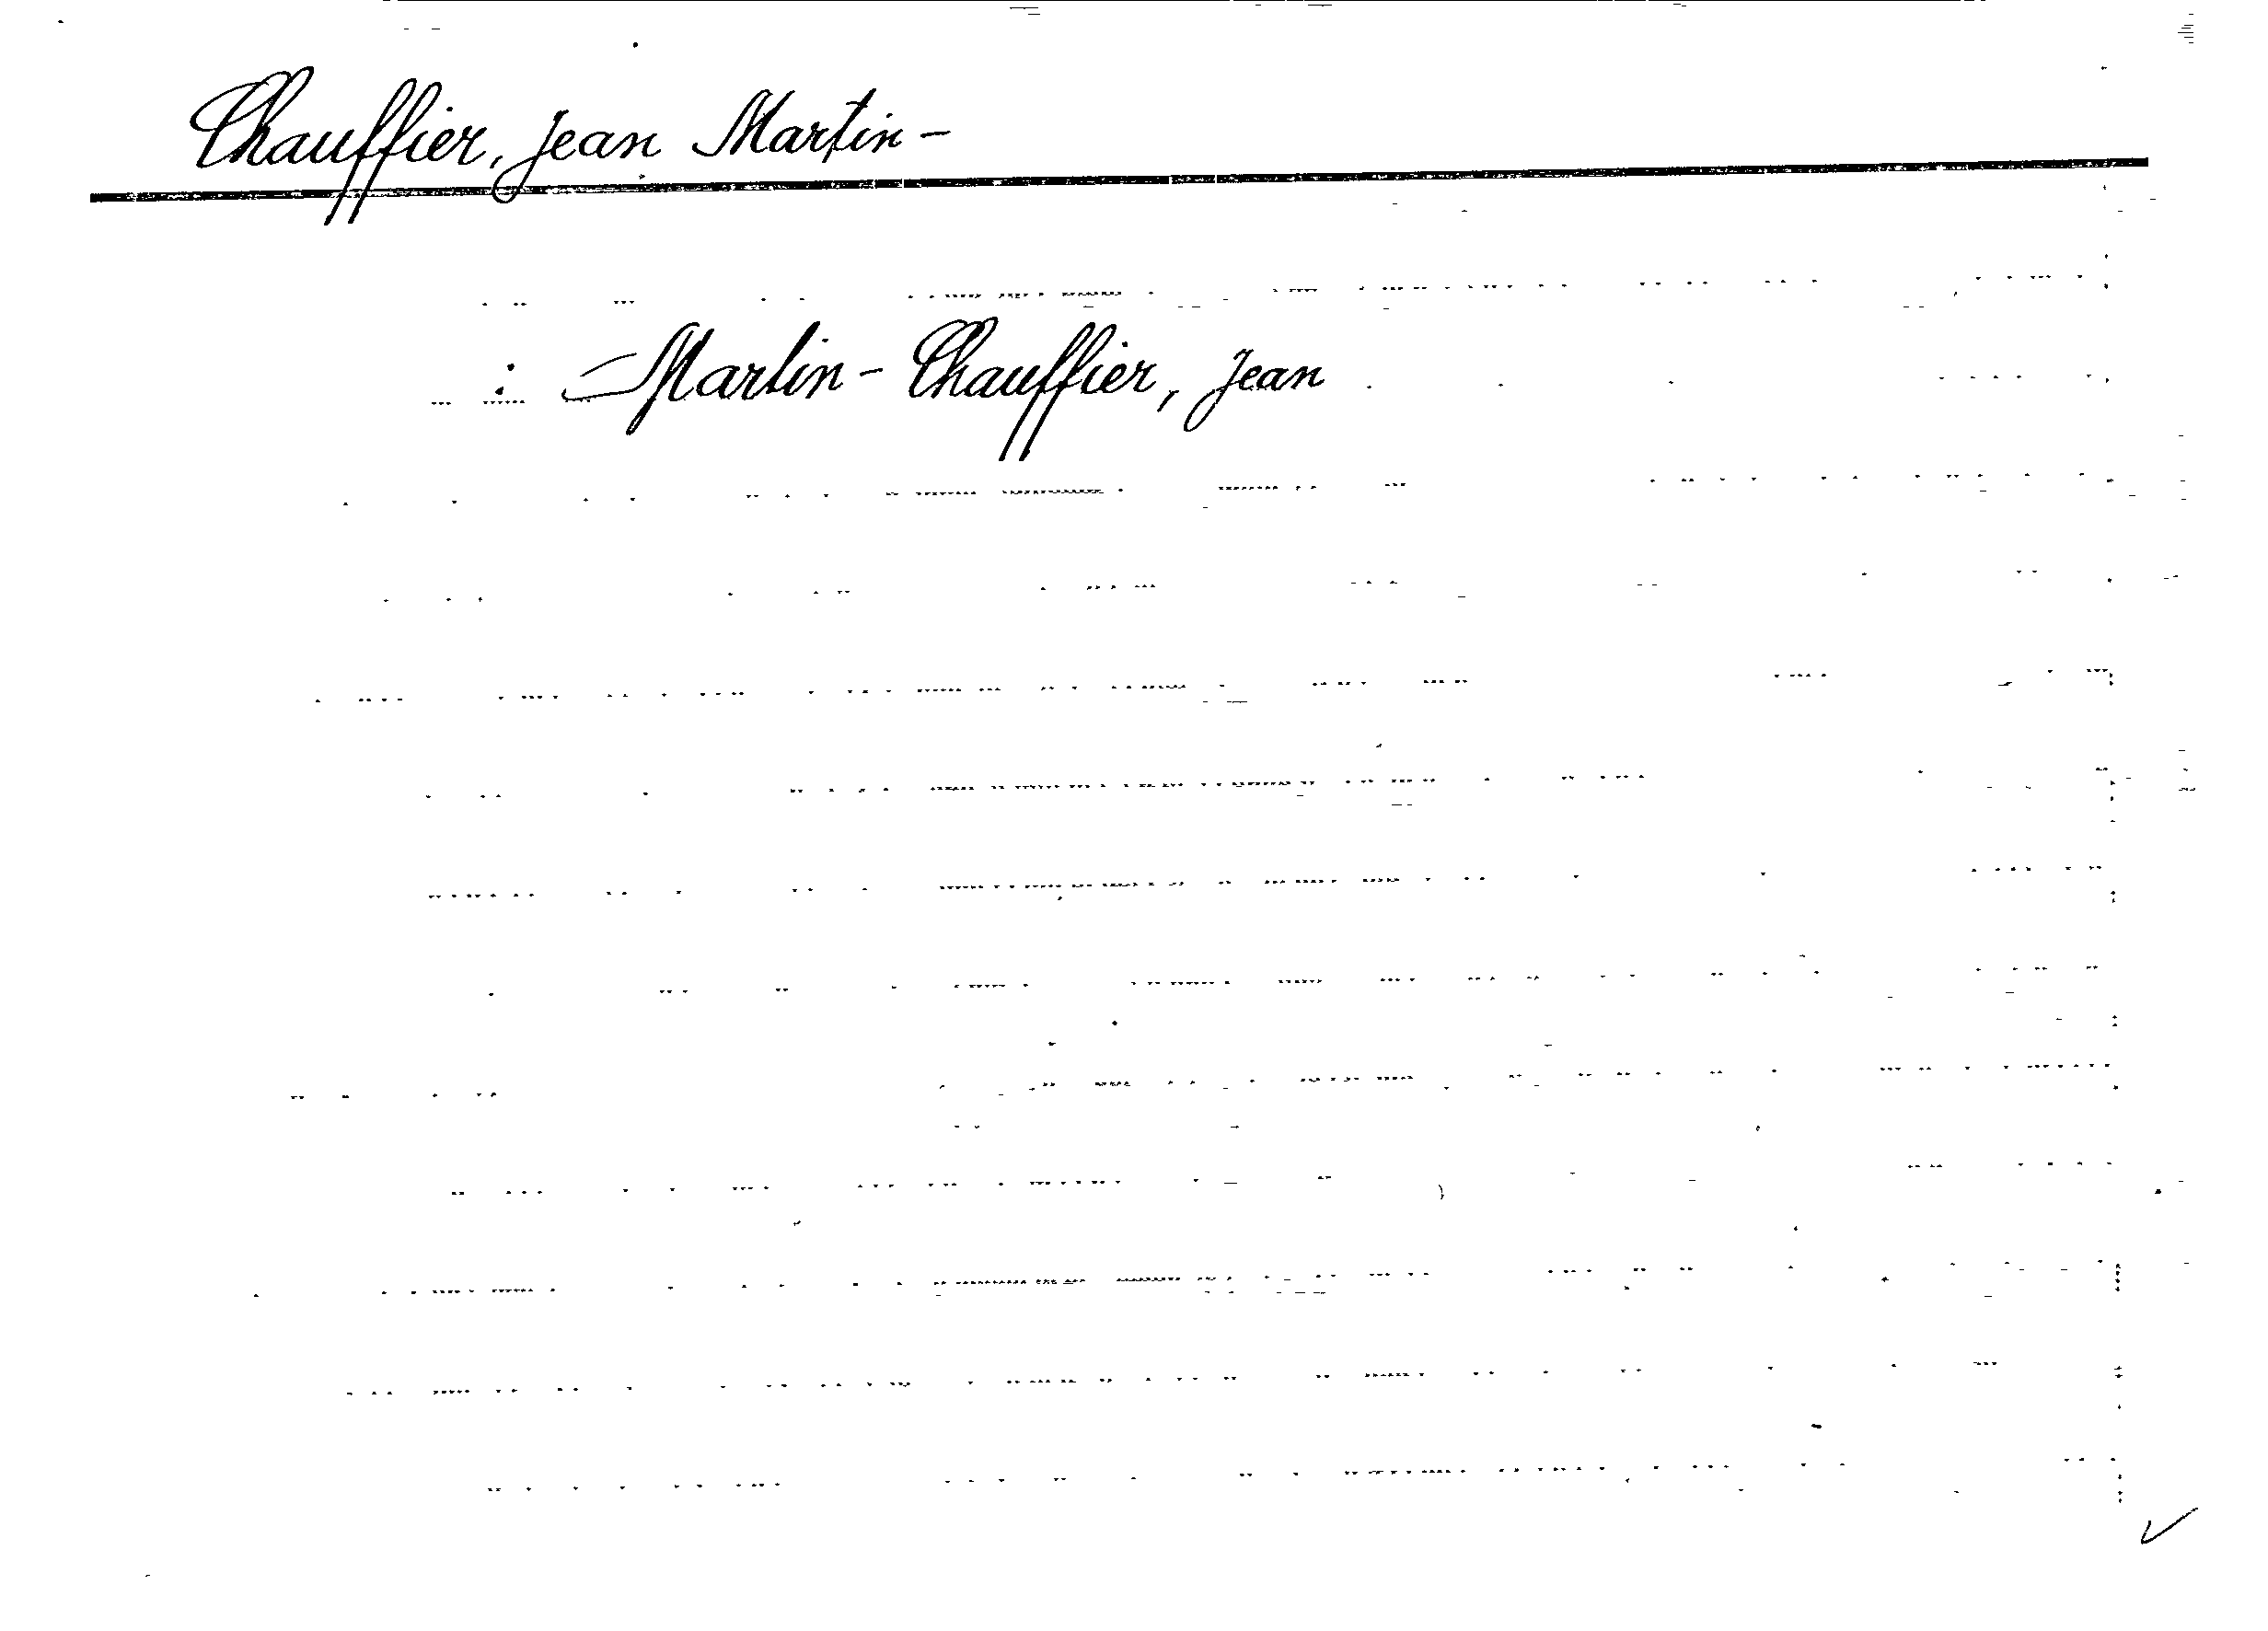 Chauffier, Jean Martin-
: Martin-Chauffier, Jean